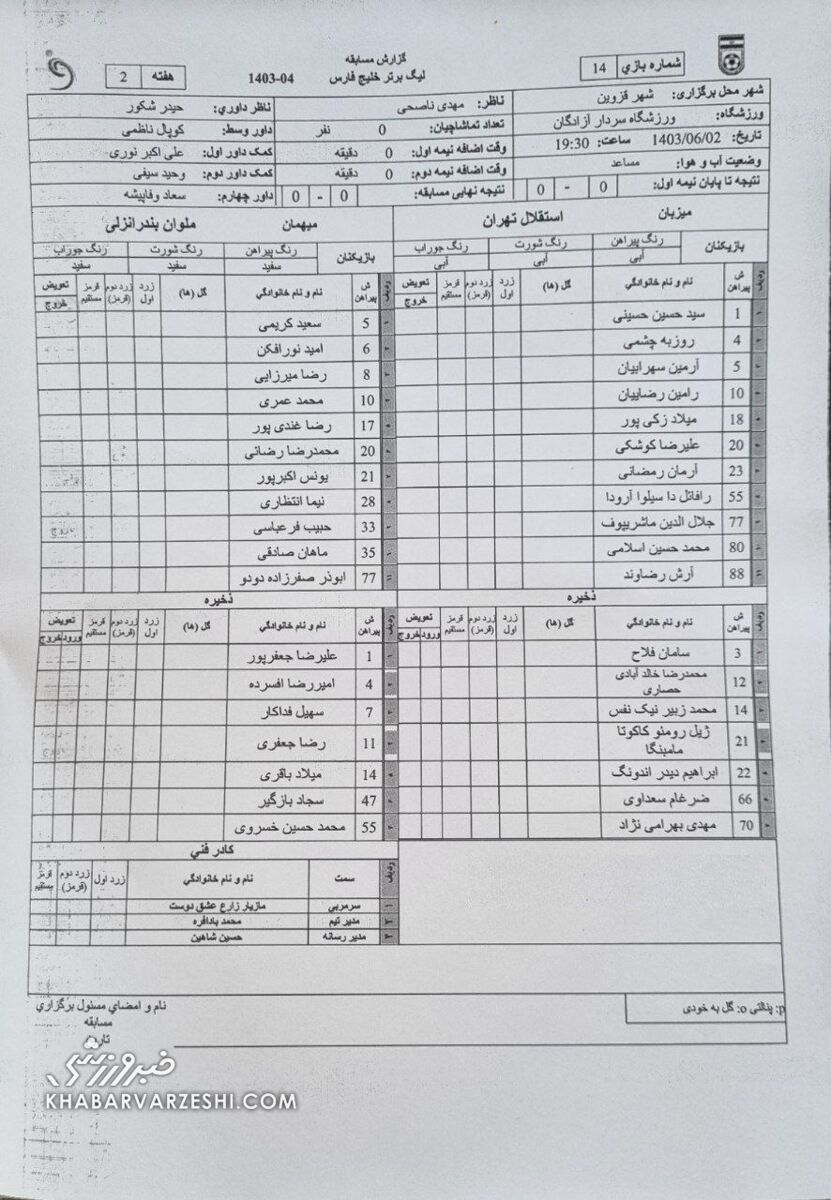 گزارش مسابقه
لیگ برتر خلیج فارس
1403-04
شماره بازي 14
هفته 2
شهر محل برگزاری: شهر قزوین
ورزشگاه: ورزشگاه سردار آزادگان
تاریخ: 1403/06/02 ساعت: 19:30
وضعیت آب و هوا: مساعد
نتیجه تا پایان نیمه اول: 0 - 0
ناظر: مهدی ناصحی
تعداد تماشاچیان: 0 نفر
وقت اضافه نیمه اول: 0 دقیقه
وقت اضافه نیمه دوم: 0 دقیقه
نتیجه نهایی مسابقه: 0 - 0
ناظر داوري: حیدر شکور
داور وسط: کوپال ناظمی
کمک داور اول: علی اکبر نوری
کمک داور دوم: وحید سیفی
داور چهارم: سعاد وفاپیشه
میزبان استقلال تهران
بازیکنان رنگ پیراهن رنگ شورت رنگ جوراب
آبی آبی آبی
ردیف ش پیراهن نام و نام خانوادگي گل (ها) زرد اول زرد دوم (قرمز) قرمز مستقیم تعویض خروج
1 سید حسین حسینی
4 روزبه چشمی
5 آرمین سهرابیان
10 رامین رضاییان
18 میلاد زکی پور
20 علیرضا کوشکی
23 آرمان رمضانی
55 رافائل دا سیلوا آرودا
77 جلال الدین ماشریپوف
80 محمد حسین اسلامی
88 آرش رضاوند
ذخیره
ردیف ش پیراهن نام و نام خانوادگي گل (ها) زرد اول زرد دوم (قرمز) قرمز مستقیم تعویض ورود خروج
3 سامان فلاح
12 محمدرضا خالد آبادی حصاری
14 محمد زبیر نیک نفس
21 ژیل رومئو کاکوتا مامبنگا
22 ابراهیم دیدر اندونگ
66 ضرغام سعداوی
70 مهدی بهرامی نژاد
میهمان ملوان بندرانزلی
بازیکنان رنگ پیراهن رنگ شورت رنگ جوراب
سفید سفید سفید
ردیف ش پیراهن نام و نام خانوادگي گل (ها) زرد اول زرد دوم (قرمز) قرمز مستقیم تعویض خروج
5 سعید کریمی
6 امید نورافکن
8 رضا میرزایی
10 محمد عمری
17 رضا غندی پور
20 محمدرضا رضائی
21 یونس اکبرپور
28 نیما انتظاری
33 حبیب فرعباسی
35 ماهان صادقی
77 ابوذر صفرزاده دودو
ذخیره
ردیف ش پیراهن نام و نام خانوادگي گل (ها) زرد اول زرد دوم (قرمز) قرمز مستقیم تعویض ورود خروج
1 علیرضا جعفرپور
4 امیررضا افسرده
7 سهیل فداکار
11 رضا جعفری
14 میلاد باقری
47 سجاد بازگیر
55 محمد حسین خسروی
کادر فني
ردیف سمت نام و نام خانوادگي زرد اول زرد دوم (قرمز) قرمز مستقیم
۱ سرمربی مازیار زارع عشق دوست
۲ مدیر تیم محمد بادافره
۳ مدیر رسانه حسین شاهین
p: پنالتی o: گل به خودی
نام و امضاي مسئول برگزاري
مسابقه
تاریخ
خبرورزشی
KHABARVARZESHI.COM